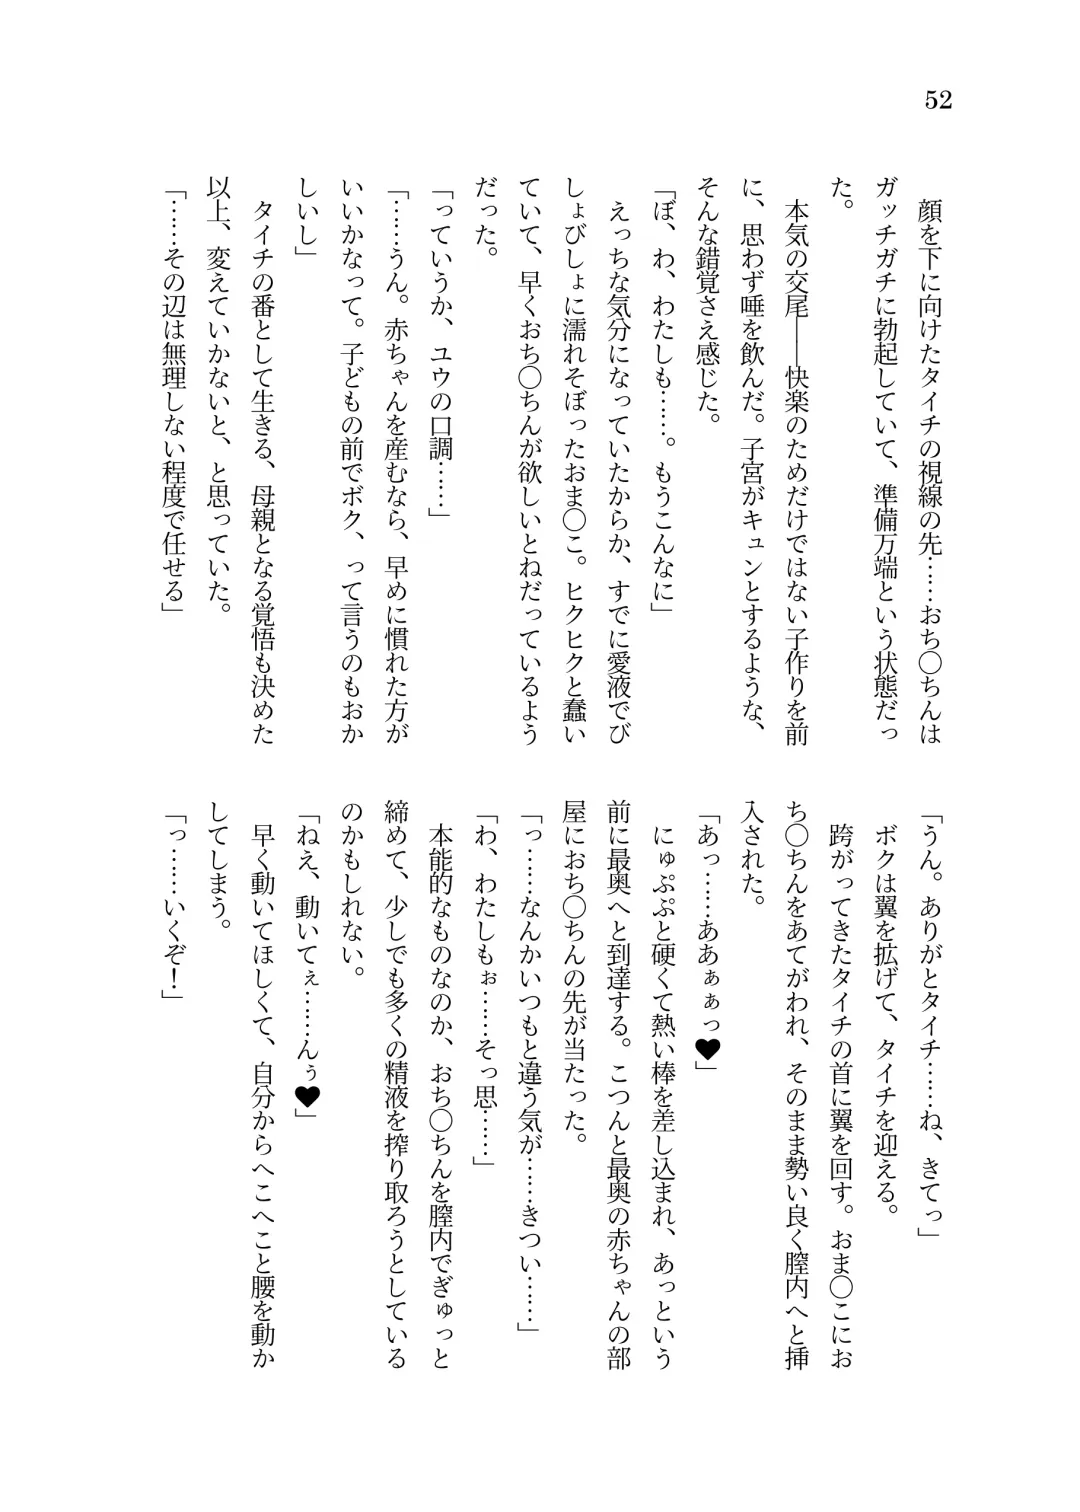 52
　顔を下に向けたタイチの視線の先……おち◯ちんは
ガッチガチに勃起していて、準備万端という状態だっ
た。
　本気の交尾――快楽のためだけではない子作りを前
に、思わず唾を飲んだ。子宮がキュンとするような、
そんな錯覚さえ感じた。
「ぼ、わ、わたしも……。もうこんなに」
　えっちな気分になっていたからか、すでに愛液でび
しょびしょに濡れそぼったおま◯こ。ヒクヒクと蠢い
ていて、早くおち◯ちんが欲しいとねだっているよう
だった。
「っていうか、ユウの口調……」
「……うん。赤ちゃんを産むなら、早めに慣れた方が
いいかなって。子どもの前でボク、って言うのもおか
しいし」
　タイチの番として生きる、母親となる覚悟も決めた
以上、変えていかないと、と思っていた。
「……その辺は無理しない程度で任せる」
「うん。ありがとタイチ……ね、きてっ」
　ボクは翼を拡げて、タイチを迎える。
　跨がってきたタイチの首に翼を回す。おま◯こにお
ち◯ちんをあてがわれ、そのまま勢い良く膣内へと挿
入された。
「あっ……ああぁぁっ♥」
　にゅぷぷと硬くて熱い棒を差し込まれ、あっという
前に最奥へと到達する。こつんと最奥の赤ちゃんの部
屋におち◯ちんの先が当たった。
「っ……なんかいつもと違う気が……きつい……」
「わ、わたしもぉ……そっ思……」
　本能的なものなのか、おち◯ちんを膣内でぎゅっと
締めて、少しでも多くの精液を搾り取ろうとしている
のかもしれない。
「ねえ、動いてぇ……んぅ♥」
　早く動いてほしくて、自分からへこへこと腰を動か
してしまう。
「っ……いくぞ！」